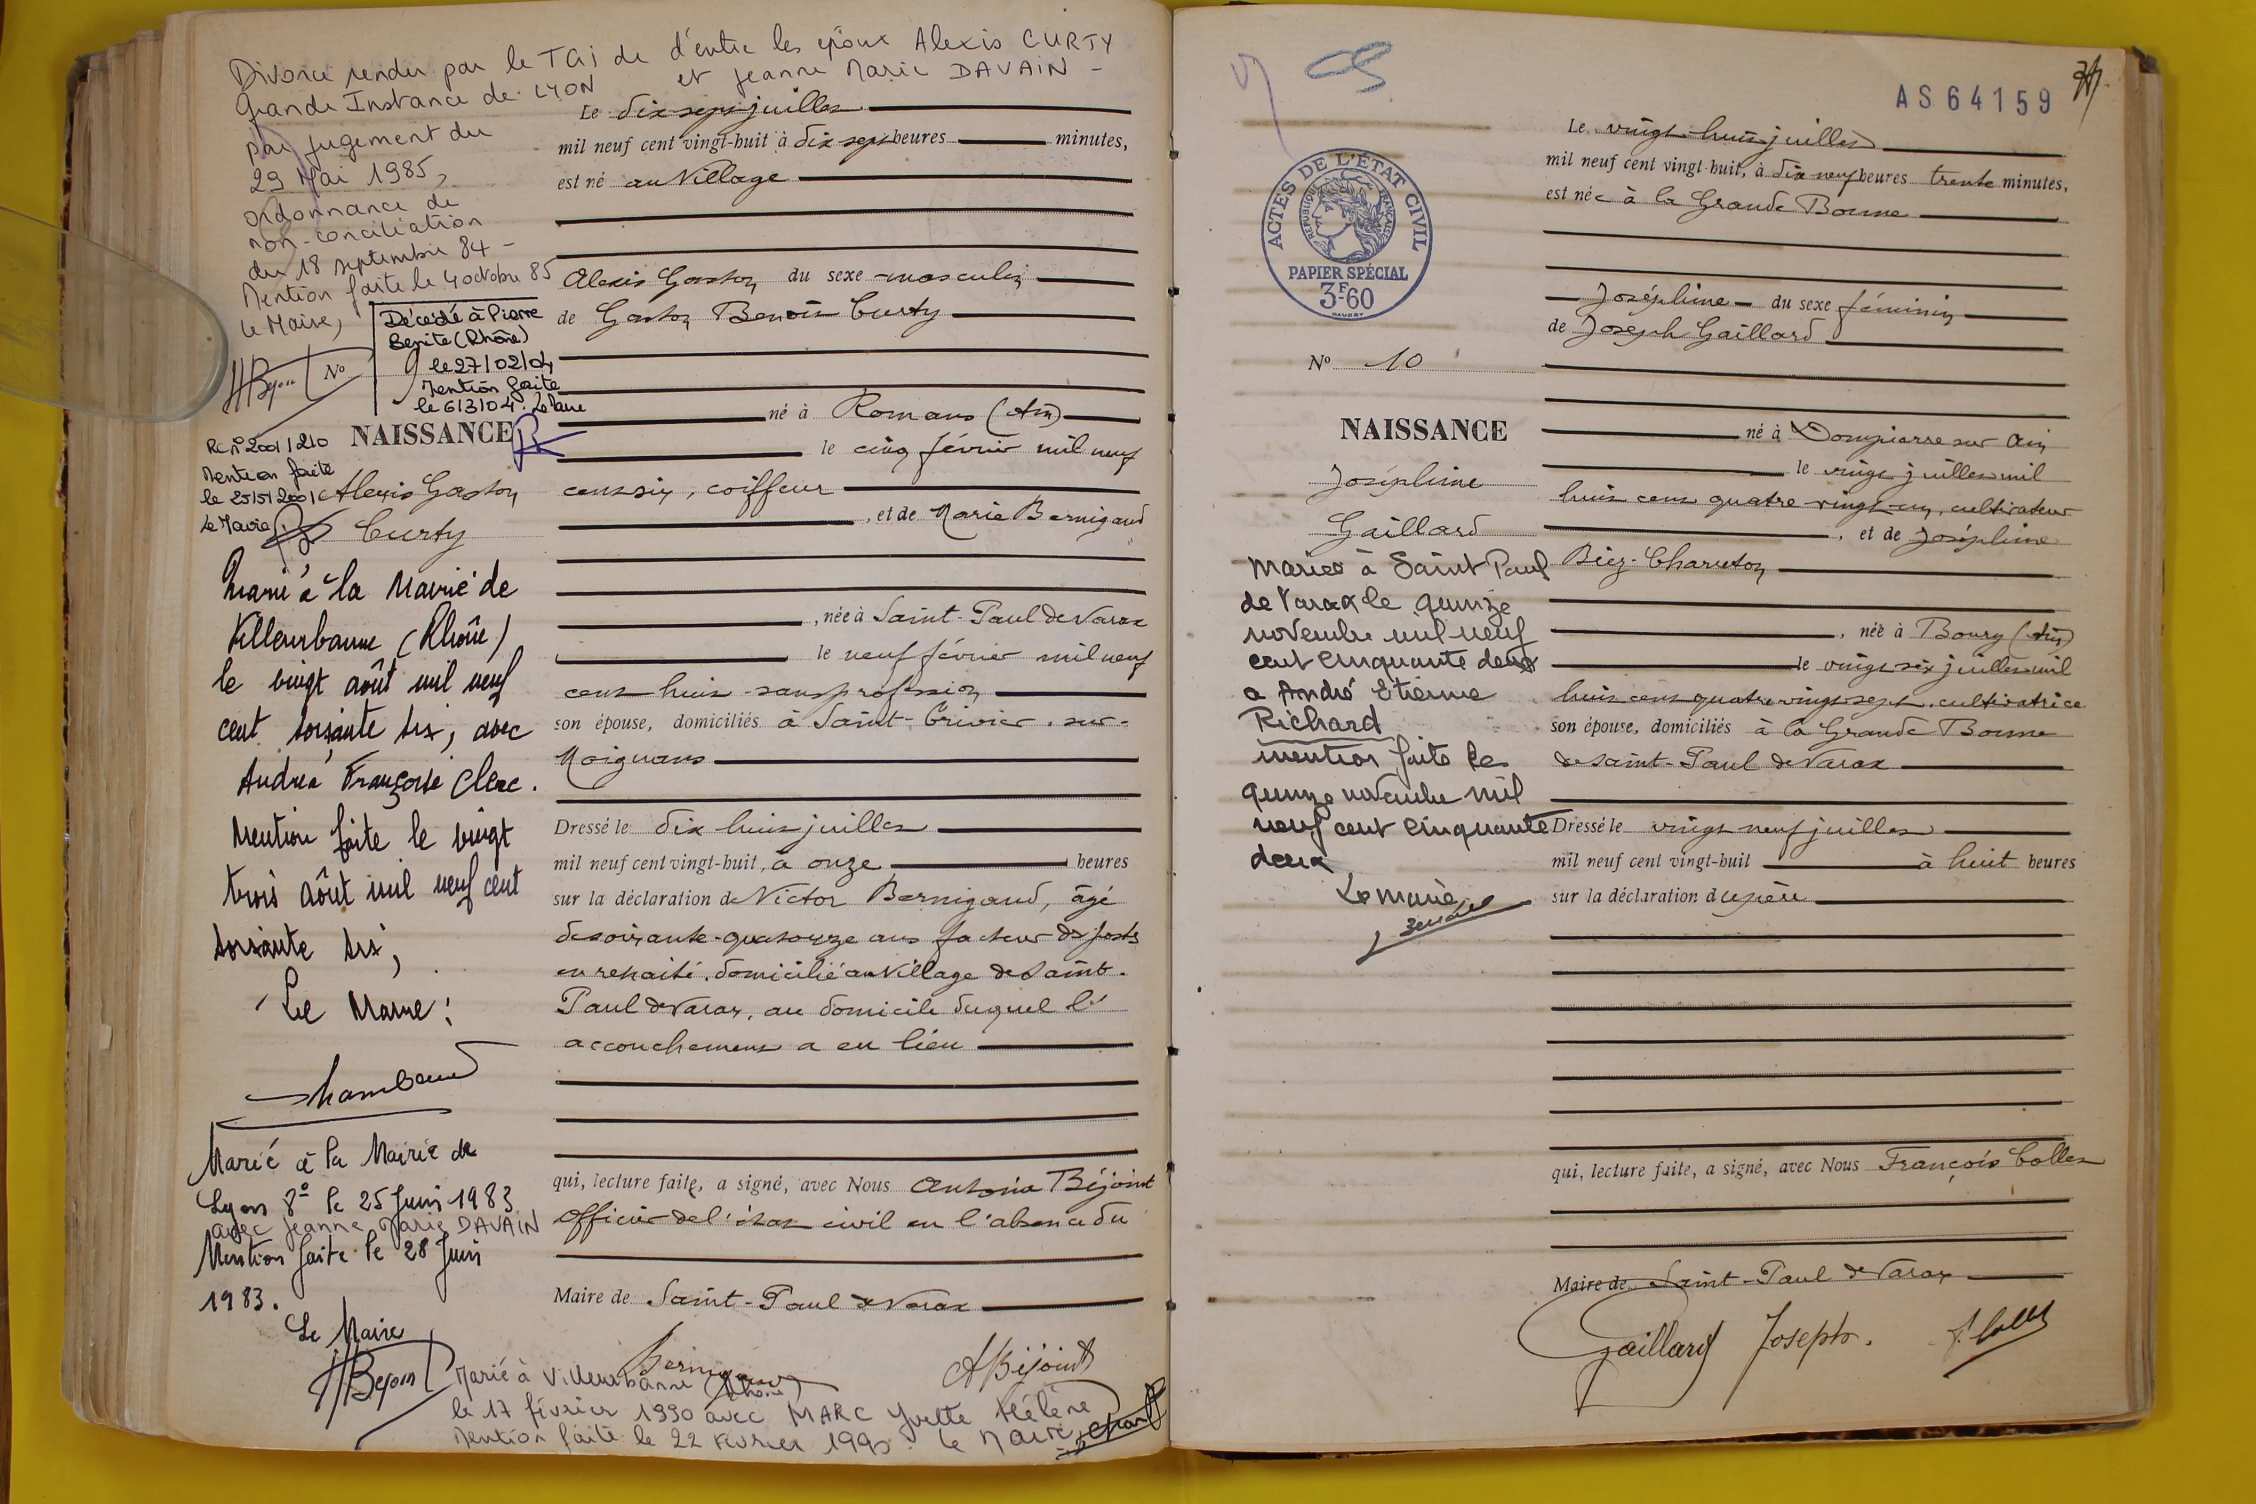 Divorce rendu par le TGi de d'entre les époux Alexis CURTY
Grande Instance de LYON et Jeanne Marie DAVAIN -
par jugement du
29 Mai 1985,
ordonnance de
non-conciliation
du 18 septembre 84 -
Mention faite le 4 octobre 85
Le Maire,
HBejoint
Décédé à Pierre
Bénite (Rhône)
le 27/02/04
Mention faite
le 6/3/04. Le Maire
No
RC n° 2001/210
Mention faite
le 25/5/2001
Le Maire
NAISSANCE
Alexis Gaston
Curty
Marié à la Mairie de
Villeurbanne (Rhône)
le vingt août mil neuf
cent soixante six, avec
Andrée Françoise Clerc.
Mention faite le vingt
trois août mil neuf cent
soixante six,
Le Maire :
Marié à la Mairie de
Lyon 8° le 25 Juin 1983
avec Jeanne Marie DAVAIN
Mention faite le 28 Juin
1983.
Le Maire
HBejoint
Le dix sept juillet
mil neuf cent vingt-huit à dix sept heures minutes,
est né au Village
Alexis Gaston du sexe masculin
de Gaston Benoît Curty
né à Romans (Ain)
le cinq février mil neuf
cent six, coiffeur
, et de Marie Bernigaud
, née à Saint-Paul de Varax
le neuf février mil neuf
cent huit sans profession
son épouse, domiciliés à Saint-Trivier-sur-
Moignans
Dressé le dix huit juillet
mil neuf cent vingt-huit, à onze heures
sur la déclaration de Victor Bernigaud, âgé
de soixante-quatorze ans facteur des postes
en retraite, domicilié au Village de Saint-
Paul de Varax, au domicile duquel l'
accouchement a eu lieu
qui, lecture faite, a signé, avec Nous Antonin Béjoint
Officier de l'état civil en l'absence du
Maire de Saint-Paul de Varax
Bernigaud
ABéjoint
Marié à Villeurbanne (Rhône)
le 17 février 1990 avec MARC Yvette Hélène
Mention faite le 22 Février 1990. Le Maire,
AS64159
ACTES DE L'ÉTAT CIVIL
RÉPUBLIQUE FRANÇAISE
PAPIER SPÉCIAL
3F60
No 10
NAISSANCE
Joséphine
Gaillard
Mariée à Saint Paul
de Varax le quinze
novembre mil neuf
cent cinquante deux
a André Etienne
Richard
mention faite le
quinze novembre mil
neuf cent cinquante
deux
Le maire
Le vingt-huit juillet
mil neuf cent vingt-huit, à dix neuf heures trente minutes,
est née à la Grande Bonne
Joséphine du sexe féminin
de Joseph Gaillard
né à Dompierre sur Ain
le vingt juillet mil
huit cent quatre vingt-un, cultivateur
, et de Joséphine
Biez-Charreton
, née à Bourg (Ain)
le vingt six juillet mil
huit cent quatre vingt-sept, cultivatrice
son épouse, domiciliés à la Grande Bonne
de Saint-Paul de Varax
Dressé le vingt neuf juillet
mil neuf cent vingt-huit à huit heures
sur la déclaration du père
qui, lecture faite, a signé, avec Nous François Collet
Maire de Saint-Paul de Varax
Gaillard Joseph. F. Collet